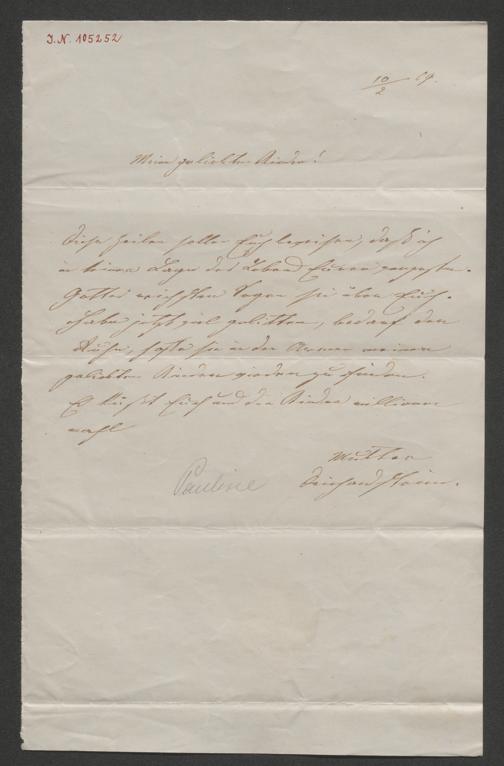 J.N. 105252
10/2 69.
Meine geliebten Kinder!
Diese Zeilen sollen Euch beweisen, daß ich
in keiner Lage des Lebens Eurer vergesse.
Gottes reichsten Segen sei über Euch.
Habe jetzt viel gelitten, bedarf der
Ruhe, hoffe sie in den Armen meiner
geliebten Kinder wieder zu finden.
Es küßt Euch und die Kinder millionen
mahl
Mutter
Pauline